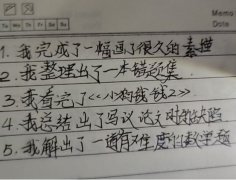 Memo
Date
Tu We Th Fr Sa Su
1.我完成了一幅画了很久的素描
2.我整理出了一本错题集
3.我看完了<<小狗钱钱2>>
4.我总结出了写议论文时的缺陷
5.我解出了一道有难度的数学题